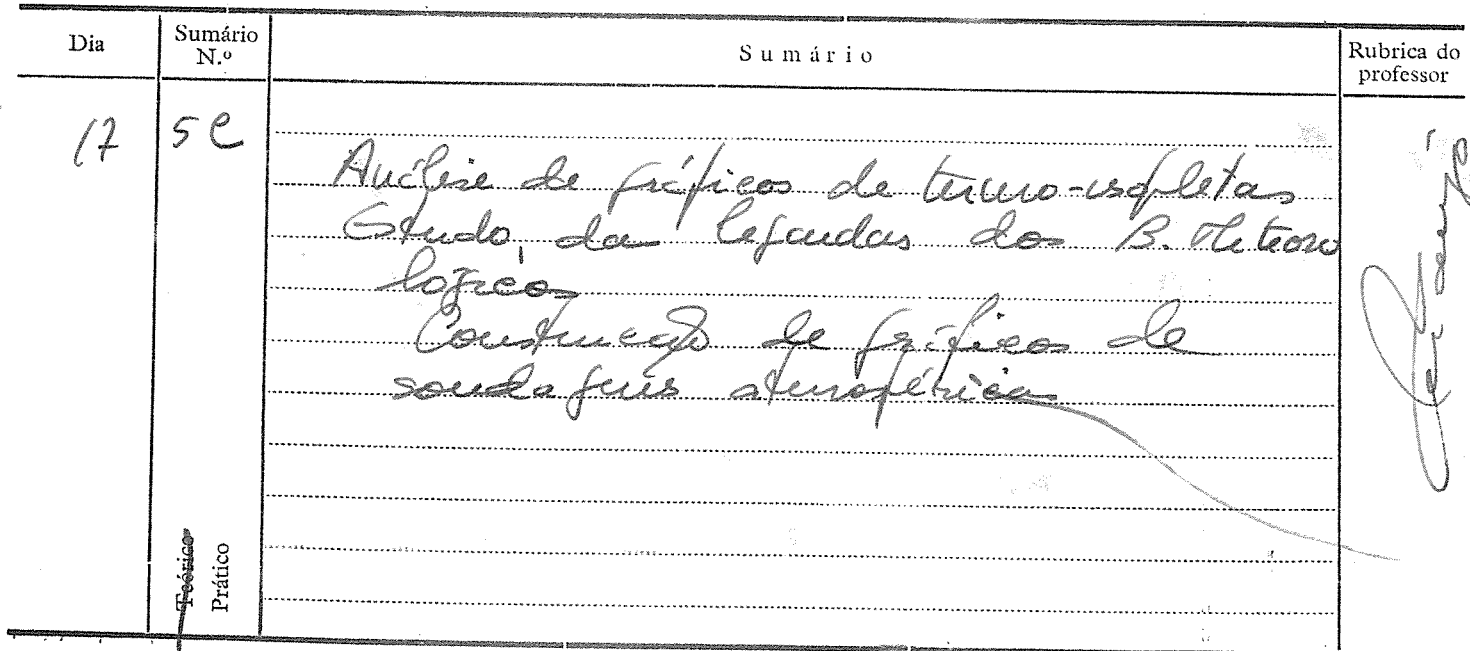 Dia
Sumário N.º
Sumário
Rubrica do professor
17
5 e
Análise de gráficos de termo-isopletas
Estudo, da legendas dos B. Meteoro
lógicos
Construção de gráficos de
sondagens atmosférica
Teórico
Prático